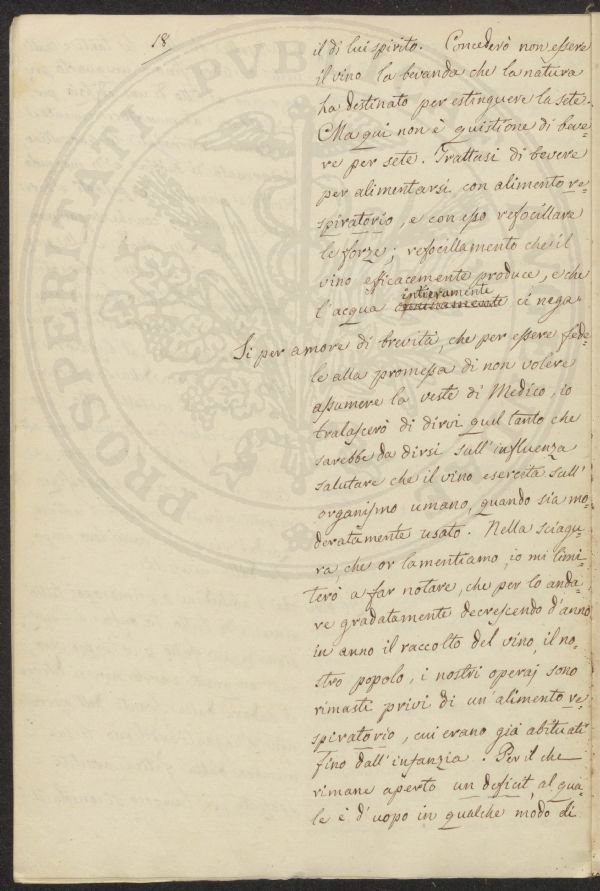 18
il di lui spirito. Concederò non essere
il vino la bevanda che la natura
ha destinato per estinguere la sete.
Ma qui non è quistione di beve-
re per sete. Trattasi di bevere
per alimentarsi con alimento re-
spiratorio, e con esso refocillare
le forze; refocillamento che il
vino efficacemente produce, e che
intieramente
l'acqua ci nega.
Si per amore di brevità, che per essere fede-
le alla promessa di non volere
assumere la veste di Medico, io
tralascerò di dirvi quel tanto che
sarebbe da dirsi sull'influenza
salutare che il vino esercita sull'
organismo umano, quando sia mo-
deratamente usato. Nella sciagu-
ra, che or lamentiamo, io mi limi-
terò a far notare, che per lo anda-
re gradatamente decrescendo d'anno
in anno il raccolto del vino, il no-
stro popolo, i nostri operaj sono
rimasti privi di un'alimento re-
spiratorio, cui erano già abituati
fino dall'infanzia. Per il che
rimane aperto un deficit, al qua-
le è d'uopo in qualche modo di
PROSPERITATI PVBLICAE